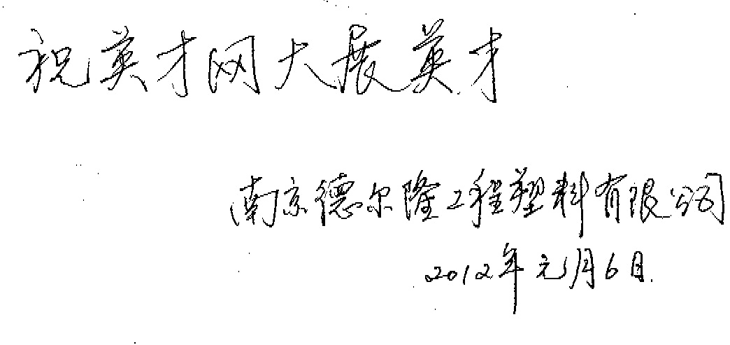 祝英才网大展英才
南京德尔隆工程塑料有限公司
2012年元月6日.